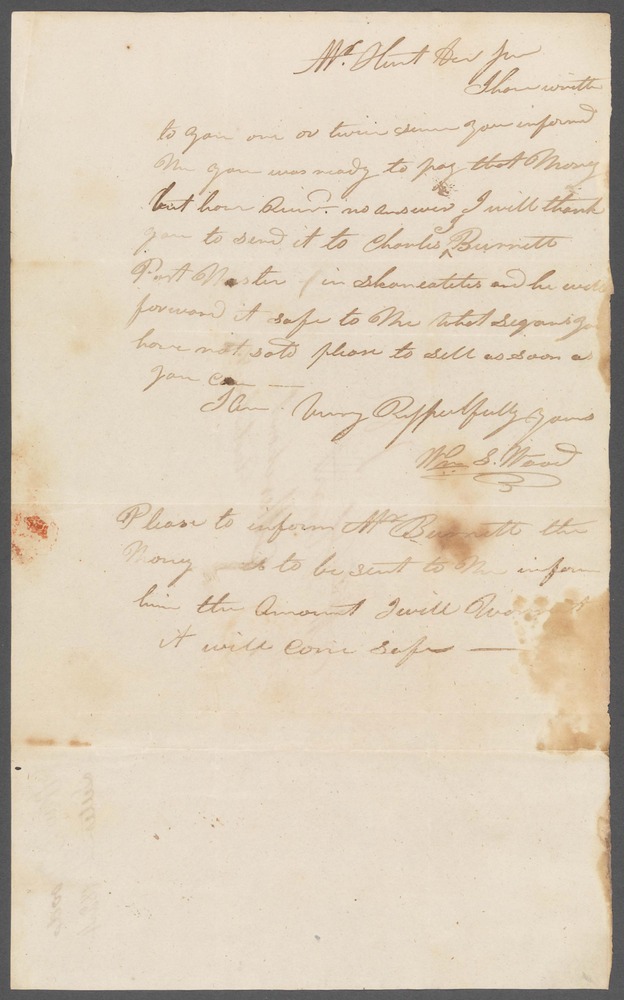 Mr. Hunt Dear Sir
I have wrote
to you one or twice since you informd
Me you was ready to pay that Money
but have Reivd. no answer I will thank
you to send it to Charles Burnett
Post Master in Skaneatetes and he will
forward it safe to Me What Segars you
have not sold please to sell as soon as
you can —
I Am Very Respectfully yours
Wm S. Wood
Please to inform Mr Burnett the
Money is to be sent to Me inform
him the Amount I will
it will come safe —